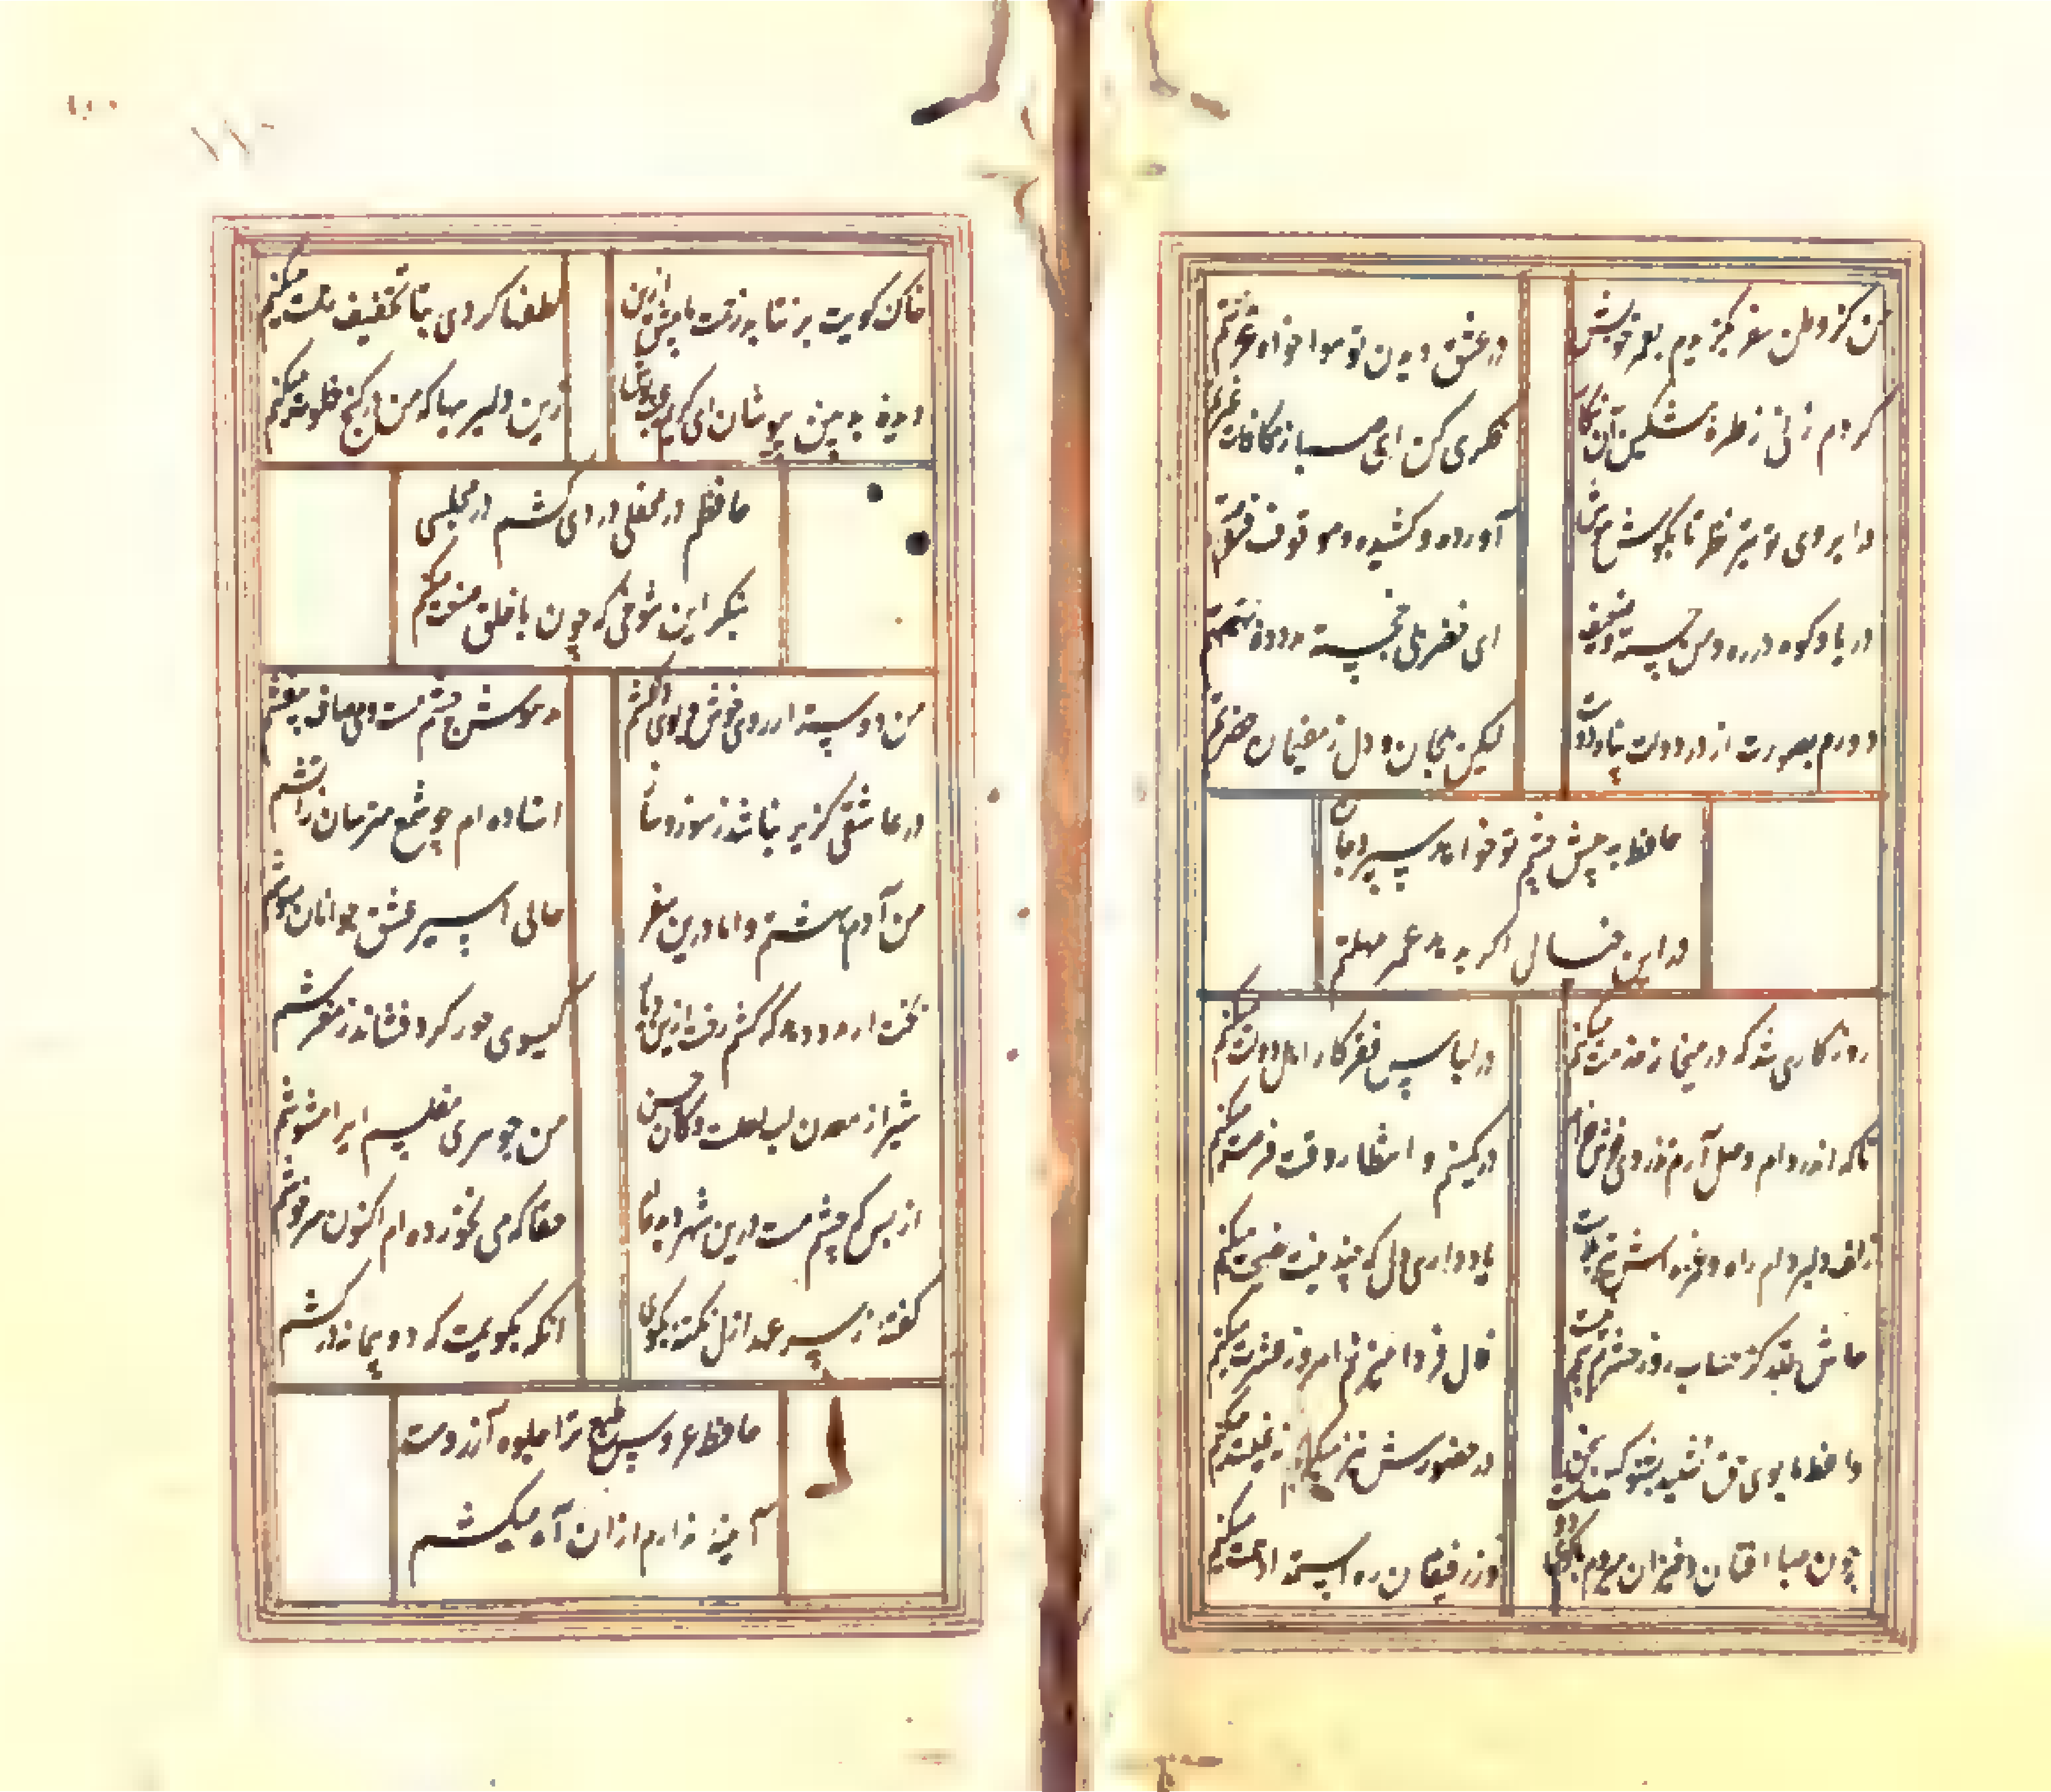 من کز وطن سفر نگزیدم بعمر خویش
در عشق دیدن تو هوا خواه غربتم
کردم زنی ز طره مشکین آن نگار
فکری کن ای صبا ز مکافات غیرتم
در ابروی تو تیر نظر تا بگوش هوش
آورده و کشیده و موقوف فرصتم
دریا و کوه در ره و من خسته و ضعیف
ای خضر پی خجسته مدد ده بهمتم
دورم بصورت از در دولت پناه دوست
لیکن بجان و دل ز مقیمان حضرتم
حافظ به پیش چشم تو خواهد سپرد جان
در این خیالم ار بدهد عمر مهلتم
روزگاری شد که در میخانه خدمت میکنم
در لباس فقر کار اهل دولت میکنم
تا که اندر دام وصل آرم تذروی خوش خرام
در کمینم و انتظار وقت فرصت میکنم
زلف دلبر دام راه و غمزه اش تیر بلاست
یاد دار ای دل که چندینت نصیحت میکنم
حاش لله کز حساب روز حشرم بیم نیست
فال فردا میزنم امروز عشرت میکنم
واعظ ما بوی حق نشنید بشنو که سخن
در حضورش نیز میگویم نه غیبت میکنم
چون صبا افتان و خیزان میروم تا کوی دوست
وز رفیقان ره استمداد همت میکنم
خاک کویت بر نتابد زحمت ما بیش ازین
لطفها کردی بتا تخفیف زحمت میکنم
دیده بدبین بپوشان ای کریم عیب پوش
زین دلیریها که من در کنج خلوت میکنم
حافظم در محفلی دردی کشم در مجلسی
بنگر این شوخی که چون با خلق صنعت میکنم
من دوستدار روی خوش و موی دلکشم
مدهوش چشم مست و می صاف بیغشم
در عاشقی گزیر نباشد ز سوز و ساز
استاده ام چو شمع مترسان ز آتشم
من آدم بهشتیم اما درین سفر
حالی اسیر عشق جوانان مهوشم
بخت ار مدد دهد که کشم رخت ازین دیار
گیسوی حور گرد فشاند ز مفرشم
شیراز معدن لب لعلست و کان حسن
من جوهری مفلسم ایرا مشوشم
از بس که چشم مست درین شهر دیده ام
حقا که می نخورده ام اکنون و سرخوشم
گفتی ز سر عهد ازل نکته بگوی
آنگه بگویمت که دو پیمانه در کشم
حافظ عروس طبع مرا جلوه آرزوست
آیینه ندارم از آن آه میکشم